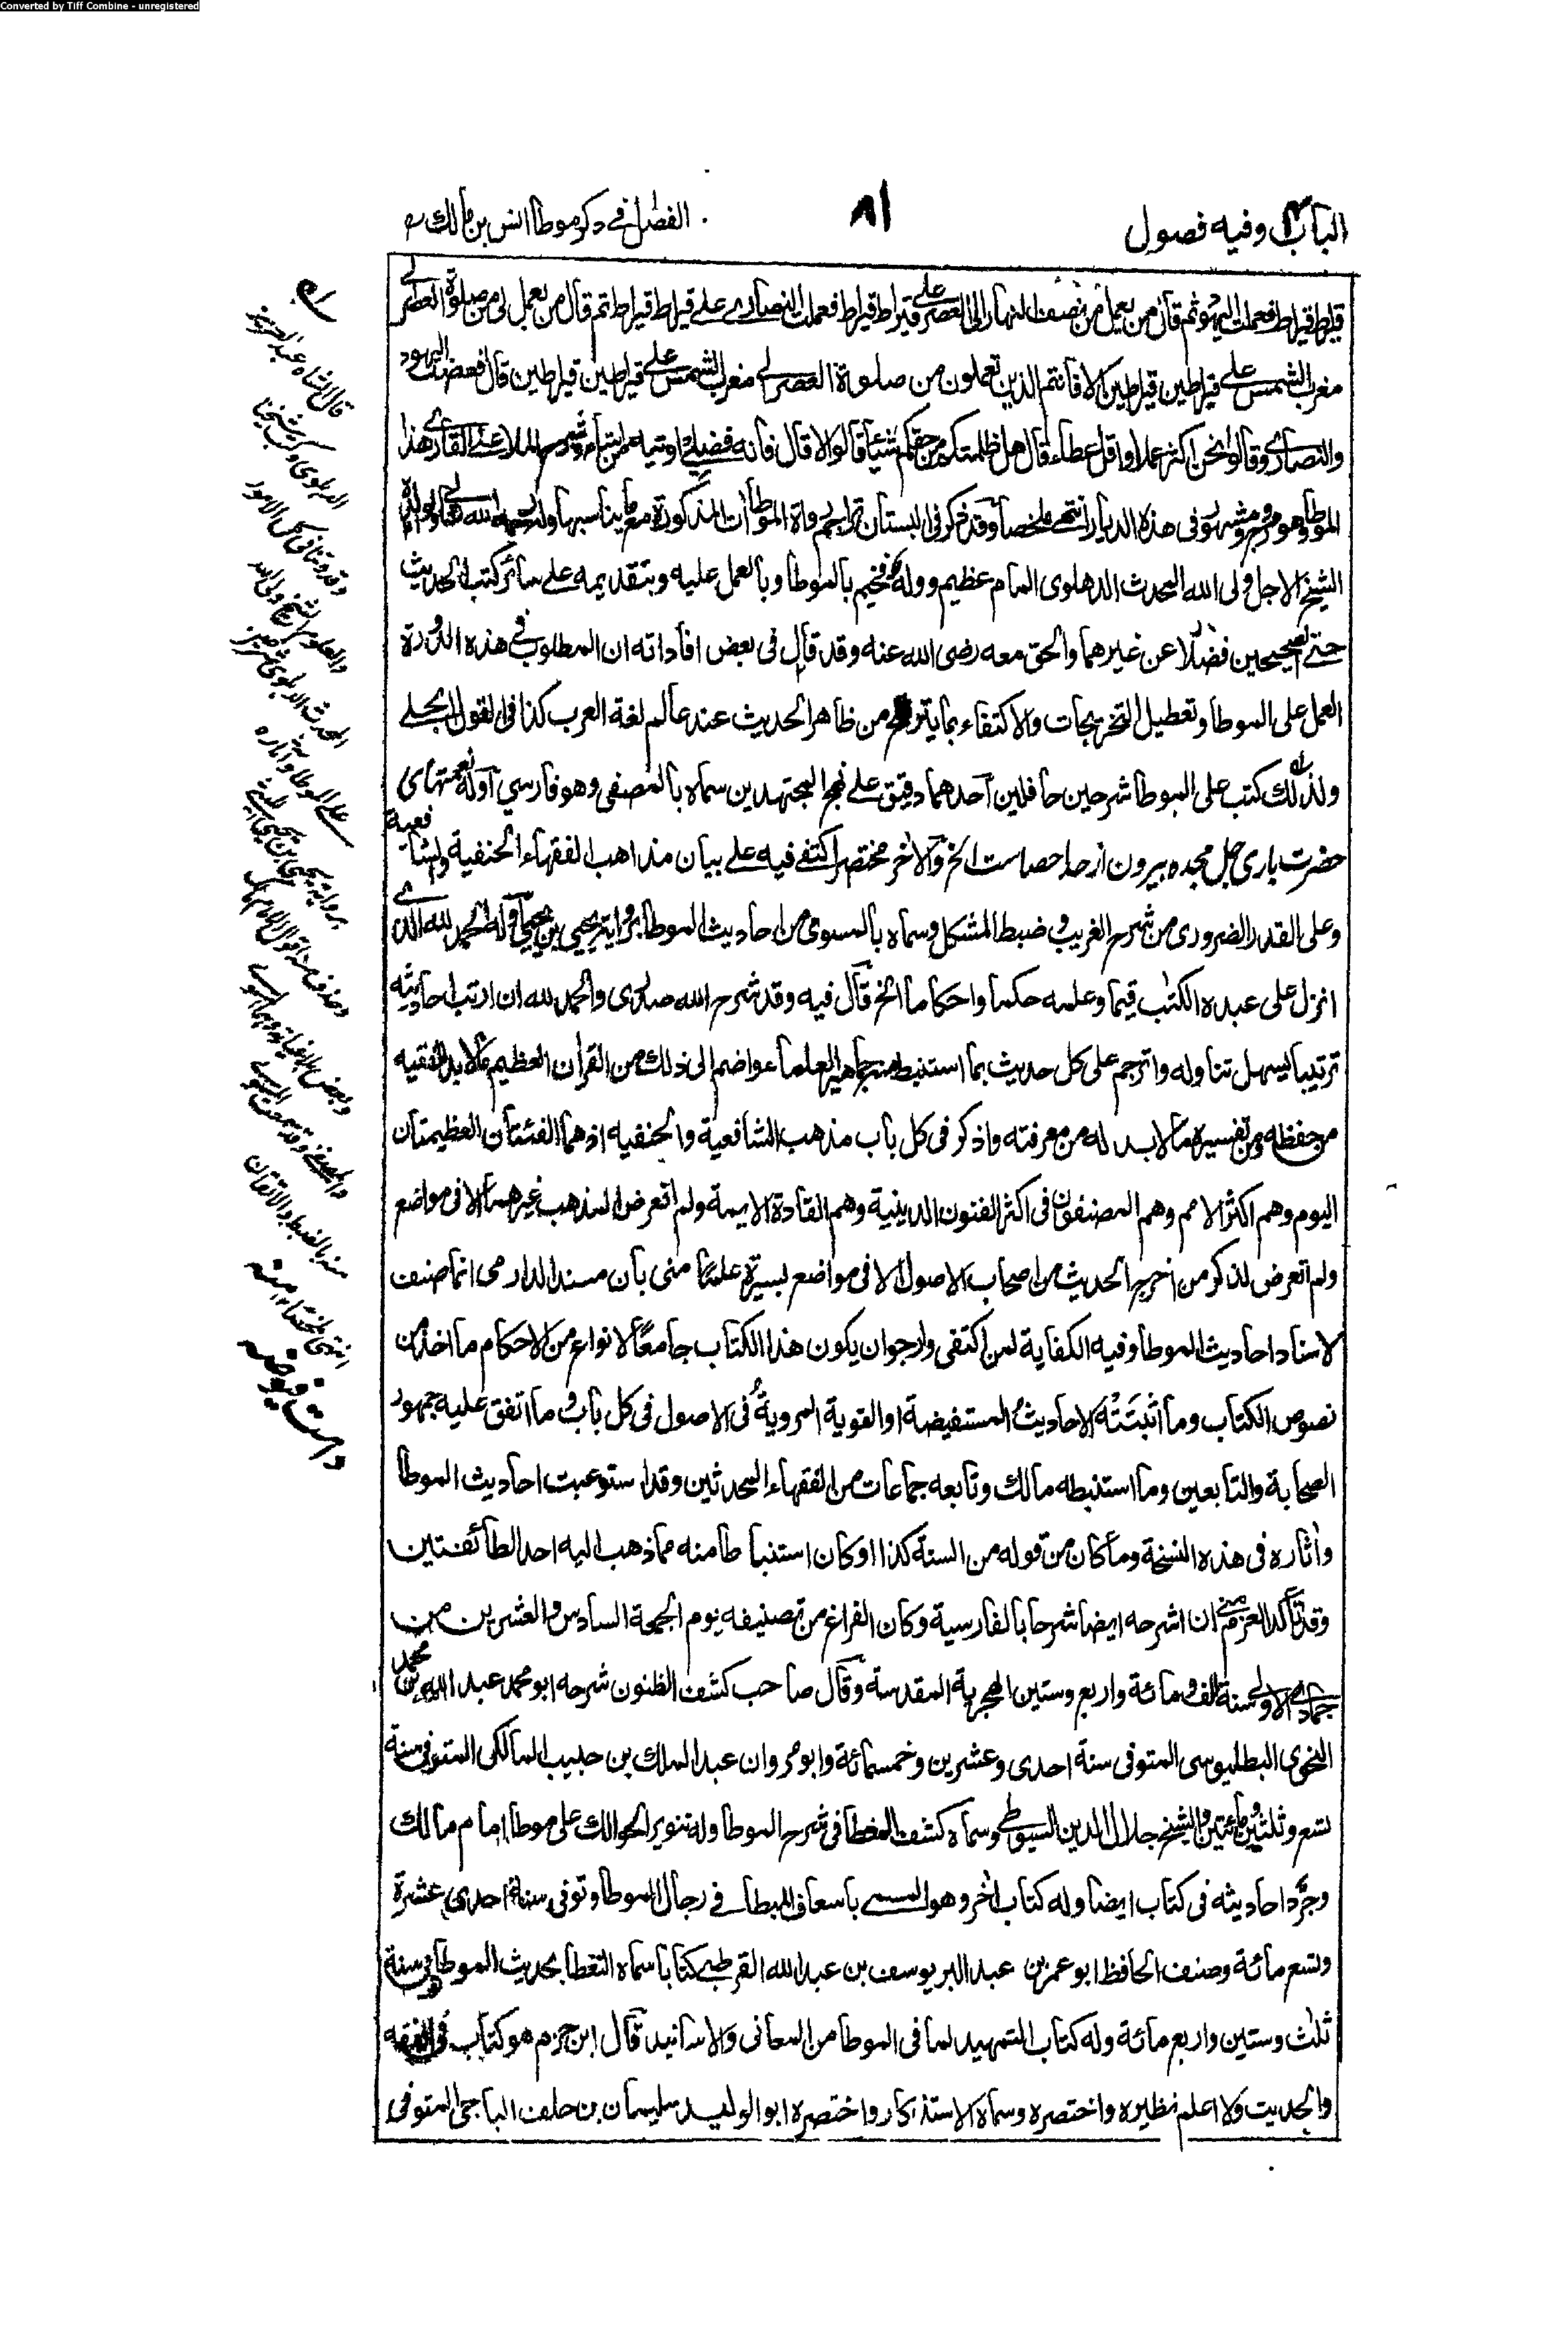 Converted by Tiff Combine - unregistered
الباب وفيه فصول
٨١
الفصل في ذكر موطا انس بن مالك
قيراط قيراط فعملت اليهود ثم قال من يعمل من نصف النهار الى العصر على قيراط قيراط فعملت النصارى على قيراط قيراط ثم قال من يعمل لى من صلوة العصر الى
مغرب الشمس على قيراطين قيراطين الا فانتم الذين تعملون من صلوة العصر الى مغرب الشمس على قيراطين قيراطين قال فغضبت اليهود
والنصارى وقالوا نحن اكثر عملا واقل عطاء قال هل ظلمتكم من حقكم شيئا قالوا لا قال فانه فضلى اوتيه من اشاء وشرح الملا على القارى هذا
الموطا وهو موجود ومشهور فى هذه الديار انتهى ملخصا وقد ذكر فى البستان تراجم رواة الموطات المذكورة مع ما يناسبها
الشيخ الاجل ولى الله المحدث الدهلوى المام عظيم ووله فخيم بالموطا وبالعمل عليه وبتقديمه على سائر كتب الحديث
حتى الصحيحين فضلا عن غيرهما والحق معه رضى الله عنه وقد قال فى بعض افاداته ان المطلوب فى هذه الدورة
العمل على الموطا وتعطيل التخريجات والاكتفاء بما يتر من ظاهر الحديث عند عالم لغة العرب كذا فى القول الجلى
ولذلك كتب على الموطا شرحين حافلين احدهما دقيق على نهج المجتهدين سماه بالمصفى وهو فارسي اوله نعمتهاى
حضرت بارى جل مجده بيرون از حد احصاست الخ والآخر مختصر اكتفى فيه على بيان مذاهب الفقهاء الحنفية والشافعية
وعلى القدر الضرورى من شرح الغريب وضبط المشكل وسماه بالمسوى من احاديث الموطا برواية يحيى بن يحيى اوله الحمد لله الذى
انزل على عبده الكتب قيما وعلمه حكما واحكاما الخ قال فيه وقد شرح الله صدرى والحمد لله ان ارتب احاديثه
ترتيبا يسهل تناوله واترجم على كل حديث بما استنبط منه جماهير العلماء واضم الى ذلك من القرآن العظيم ما لا بد للفقيه
من حفظه ومن تفسيره ما لا بد له من معرفته واذكر فى كل باب مذهب الشافعية والحنفيه اذ هما الفئتان العظيمتان
اليوم وهم اكثر الامم وهم المصنفون فى اكثر الفنون الدينية وهم القادة الايمة ولم اتعرض لمذهب غيرهما الا فى مواضع
ولم اتعرض لذكر من اخرج الحديث من اصحاب الاصول الا فى مواضع يسيرة علما منى بان مسند الدارمى انما صنف
لاسناد احاديث الموطا وفيه الكفاية لمن اكتفى وارجو ان يكون هذا الكتاب جامعًا لانواع من الاحكام ما اخذ من
نصوص الكتاب وما اثبتَتْه الاحاديث المستفيضة او القوية المروية فى الاصول فى كل باب وما اتفق عليه جمهور
الصحابة والتابعين وما استنبطه مالك وتابعه جماعات من الفقهاء المحدثين وقد استوعبت احاديث الموطا
وآثاره فى هذه النسخة وما كان من قوله من السنة كذا او كان استنباطا منه مما ذهب اليه احد الطائفتين
وقد تأكد العزم منى ان اشرحه ايضا شرحا بالفارسية وكان الفراغ من تصنيفه يوم الجمعة السادس والعشرين من
جمادى الاولى سنة الف ومائة واربع وستين الهجرية المقدسة وقال صاحب كشف الظنون شرحه ابو محمد عبد الله بن محمد
النحوى البطليوسى المتوفى سنة احدى وعشرين وخمسمائة وابو مروان عبد الملك بن حبيب المالكى المتوفى سنة
تسع وثلثين ومائتين والشيخ جلال الدين السيوطى وسماه كشف المغطا فى شرح الموطا وله تنوير الحوالك على موطا امام مالك
وجرّد احاديثه فى كتاب ايضا وله كتاب آخر وهو المسمى باسعاف المبطا فى رجال الموطا وتوفى سنة احدى عشرة
وتسع مائة وصنف الحافظ ابو عمر بن عبد البر يوسف بن عبد الله القرطبى كتابا سماه التغطا بحديث الموطا وتوفى سنة
ثلث وستين واربع مائة وله كتاب التمهيد لما فى الموطا من المعانى والاسانيد قال ابن حزم هو كتاب فى الفقه
والحديث ولا اعلم نظيره واختصره وسماه الاستذكار واختصره ابو الوليد سليمان بن خلف الباجى المتوفى
قال الشاه عبد العزيز